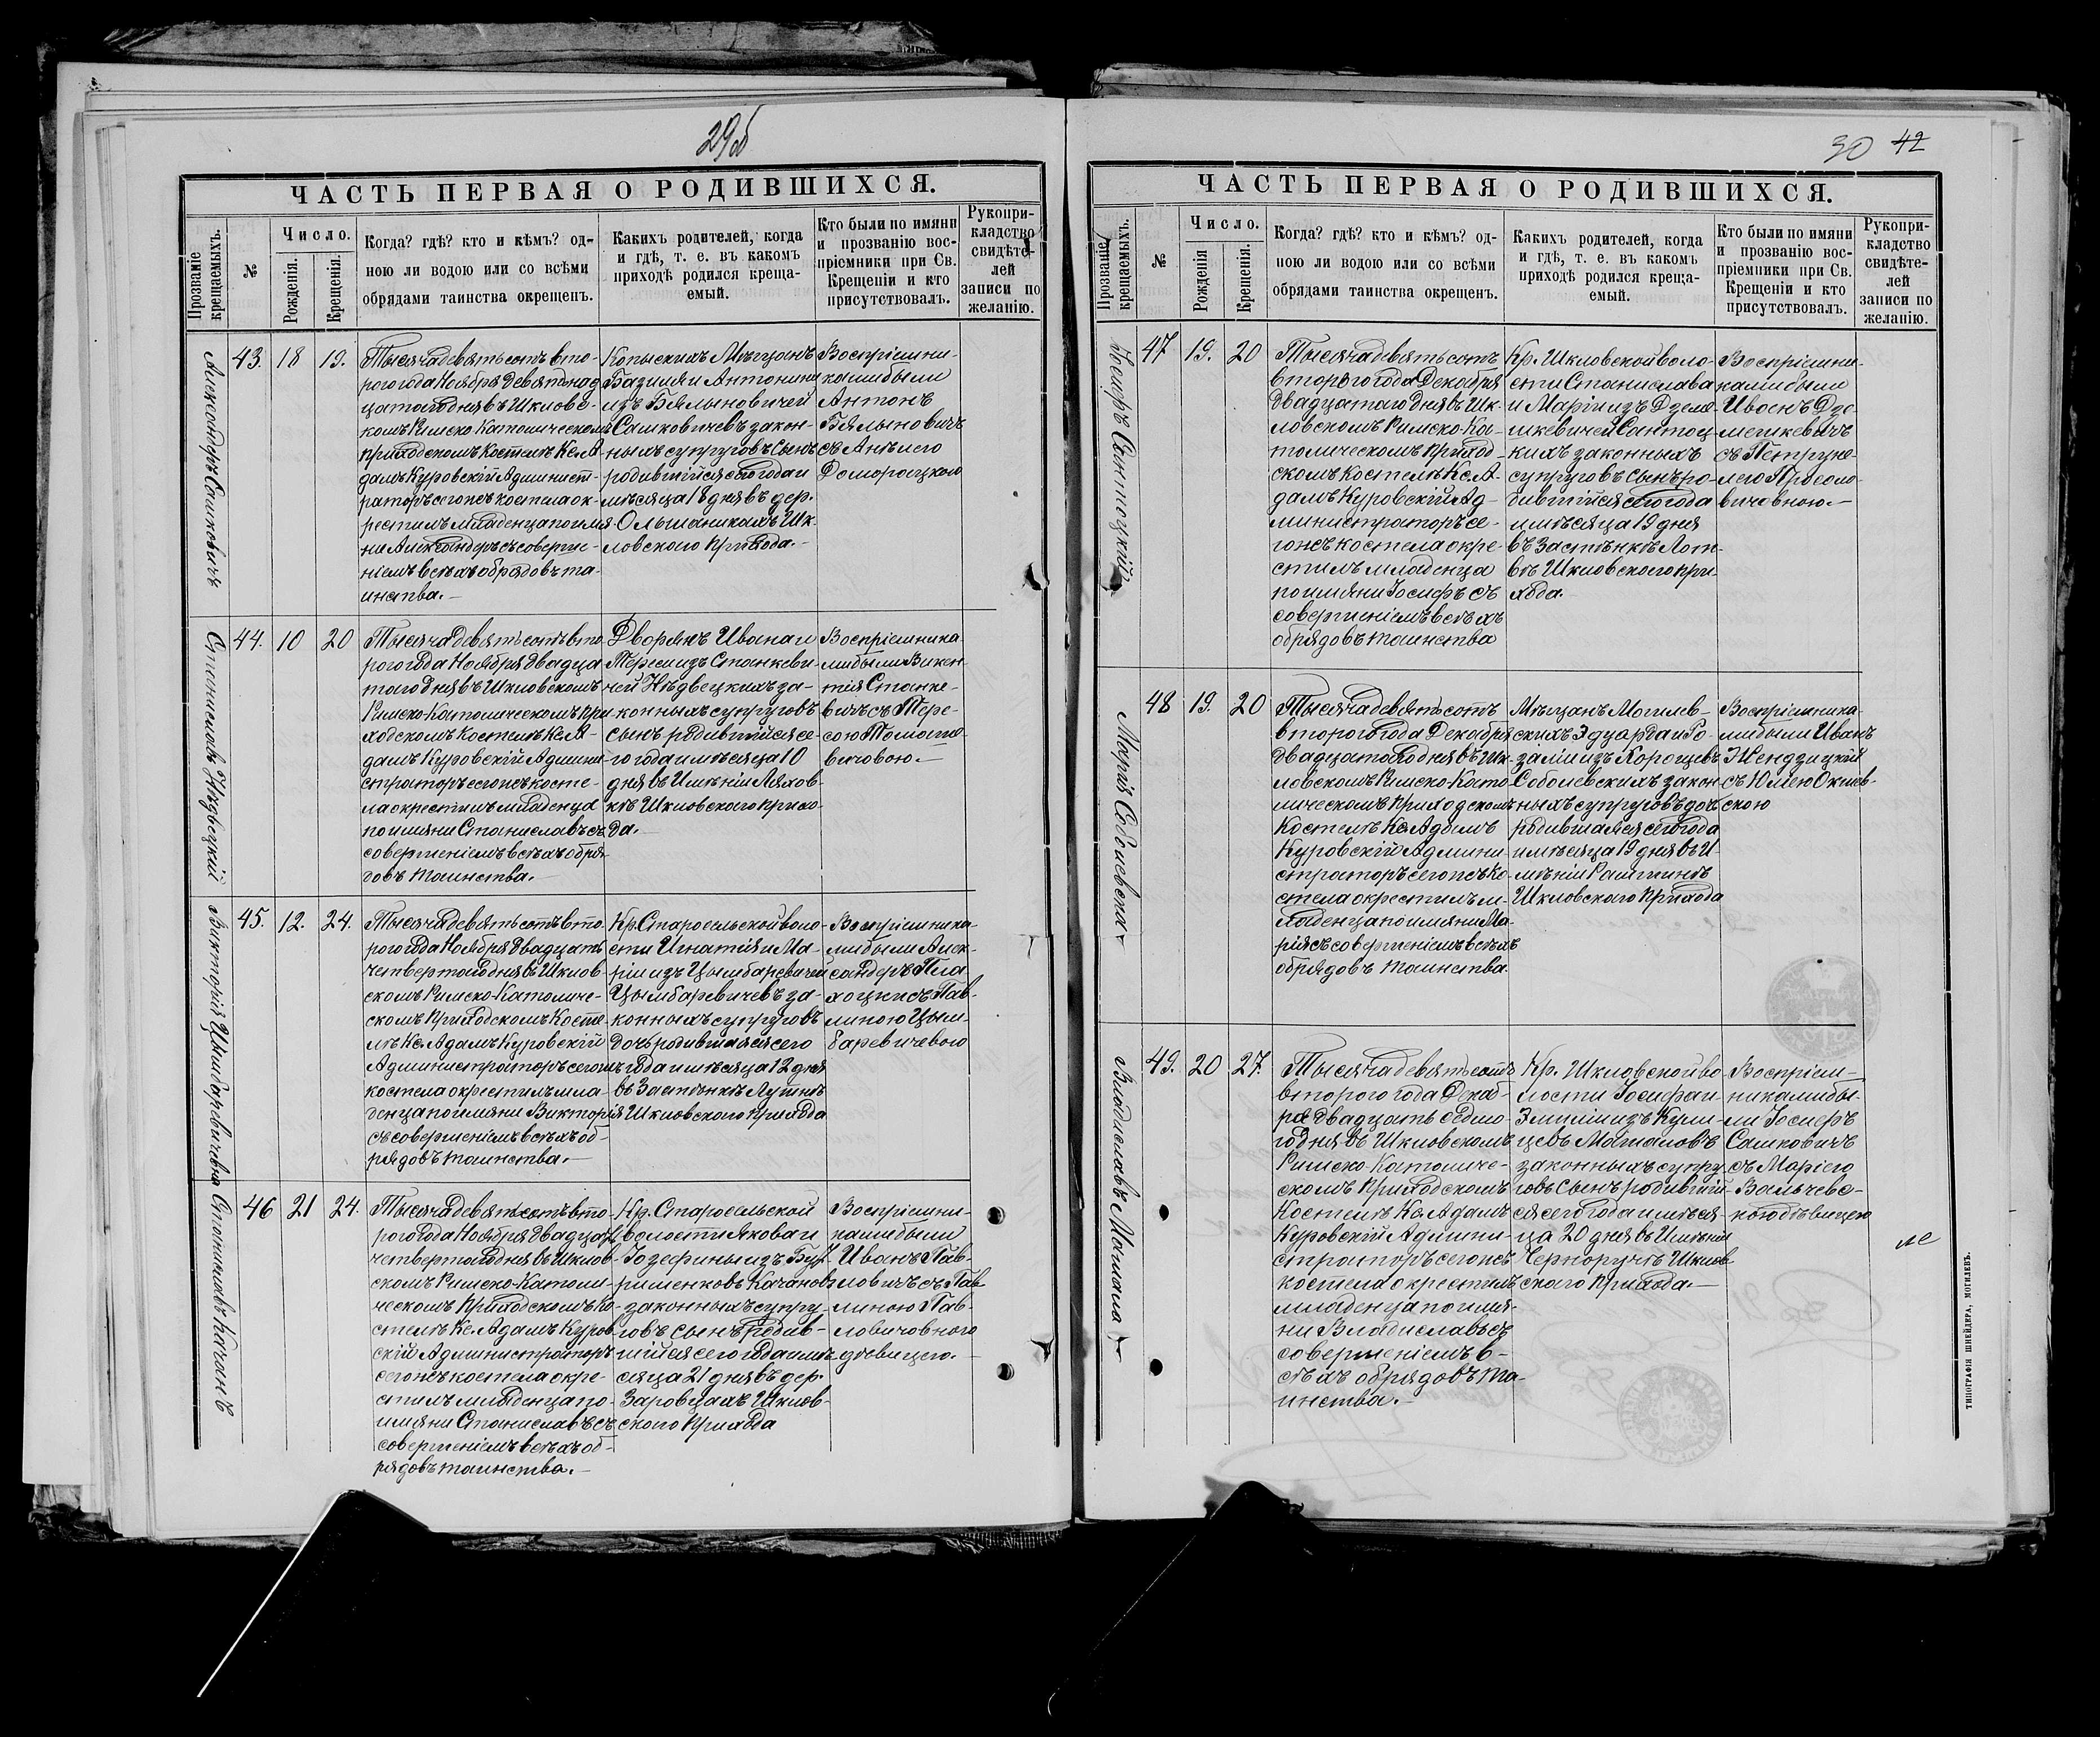 29об
ЧАСТЬ ПЕРВАЯ О РОДИВШИХСЯ.
Прозваніе крещаемыхъ.
№
Число.
Рожденія.
Крещенія.
Когда? гдѣ? кто и кѣмъ? од-
ною ли водою или со всѣми
обрядами таинства окрещенъ.
Какихъ родителей, когда
и гдѣ, т. е. въ какомъ
приходѣ родился креща-
емый.
Кто были по имяни
и прозванію вос-
пріемники при Св.
Крещеніи и кто
присутствовалъ.
Рукопри-
кладство
свидѣте-
лей
записи по
желанію.
Александръ Сашковичъ
43.
18
19.
Тысяча девятьсотъ вто-
рого года Ноября девятнад-
цатаго дня въ Шклов-
скомъ Римско-Католическомъ
приходскомъ костелѣ Кс. А-
дамъ Куровскій Админист-
раторъ сегожъ костела ок-
рестилъ младенца по имя-
ни Александръ съ соверше-
ніемъ всѣхъ обрядовъ та-
инства.
Копыскихъ Мѣщанъ
Базилія и Антонины
изъ Бялыновичей
Сашковичевъ закон-
ныхъ супруговъ Сынъ
родившійся сего года и
мѣсяца 18 дня въ дер.
Ольшаникахъ Шк-
ловского прихода.
Воспріемни-
ками были
Антонъ
Бялыновичъ
съ Анѣлею
Домороцкою
Станиславъ Нѣдвецкій
44.
10
20
Тысяча девятьсотъ вто-
рого года Ноября двадца-
таго дня въ Шкловскомъ
Римско-Католическомъ при-
ходскомъ костелѣ Кс. А-
дамъ Куровскій Админи-
страторъ сегожъ косте-
ла окрестилъ младенца
по имяни Станиславъ съ
совершеніемъ всѣхъ обря-
довъ таинства.
Дворянъ Ивана и
Тересы изъ Станкеви-
чей Нѣдвецкихъ за-
конныхъ супруговъ
сынъ родившійся се-
го года и мѣсяца 10
дня въ Имѣніи Ляхов-
кѣ Шкловского прихо-
да.
Воспріемника-
ми были Викен-
тій Станке-
вичъ съ Тере-
сою Томаше-
вичовою.
Викторія Цымбаревичевна
45.
12.
24.
Тысяча девятьсотъ вто-
рого года Ноября двадцать
четвертаго дня въ Шклов-
скомъ Римско-Католиче-
скомъ Приходскомъ Косте-
лѣ Кс. Адамъ Куровскій
Администраторъ сегожъ
костела окрестилъ мла-
денца по имяни Викторія
съ совершеніемъ всѣхъ об-
рядовъ таинства.
Кр. Старосельской воло-
сти Игнатія и Ма-
ріи изъ Цымбаревичей
Цымбаревичевъ за-
конныхъ супруговъ
дочь родившаяся сего
года и мѣсяца 12 дня
въ Застѣнкѣ
Шкловского прихода
Воспріемника-
ми были Алек-
сандръ
съ Пав-
линою Цым-
баревичевою
Станиславъ Качанъ
46
21
24.
Тысяча девятьсотъ вто-
рого года Ноября двадцать
четвертаго дня въ Шклов-
скомъ Римско-Католи-
ческомъ Приходскомъ Ко-
стелѣ Кс. Адамъ Куров-
скій Администраторъ
сегожъ костела окре-
стилъ младенца по
имяни Станиславъ съ
совершеніемъ всѣхъ об-
рядовъ таинства.
Кр. Старосельской
волости Якова и
Іозефины изъ
Качановъ
законныхъ супру-
говъ сынъ родив-
шійся сего года и мѣ-
сяца 21 дня въ дер.
Заровцахъ Шклов-
ского прихода
Воспріемни-
ками были
Иванъ Пав-
ловичъ съ Пав-
линою Пав-
ловичовною
дѣвицею.
30 42
ЧАСТЬ ПЕРВАЯ О РОДИВШИХСЯ.
Прозваніе крещаемыхъ.
№
Число.
Рожденія
Крещенія.
Когда? гдѣ? кто и кѣмъ? од-
ною ли водою или со всѣми
обрядами таинства окрещенъ.
Какихъ родителей, когда
и гдѣ, т. е. въ какомъ
приходѣ родился креща-
емый.
Кто были по имяни
и прозванію вос-
пріемники при Св.
Крещеніи и кто
присутствовалъ.
Рукопри-
кладство
свидѣте-
лей
записи по
желанію.
Іосифъ Сантоцкій
47
19.
20
Тысяча девятьсотъ
второго года Декабря
двадцатаго дня въ Шк-
ловскомъ Римско-Ка-
толическомъ приход-
скомъ костелѣ Кс. А-
дамъ Куровскій Ад-
министраторъ се-
гожъ костела окре-
стилъ младенца
по имяни Іосифъ съ
совершеніемъ всѣхъ
обрядовъ таинства
Кр. Шкловской воло-
сти Станислава
и Маріи изъ Дземе-
шкевичей Сантоц-
кихъ законныхъ
супруговъ Сынъ ро-
дившійся сего года
и мѣсяца 19 дня
въ Застѣнкѣ Лот-
вѣ Шкловского при-
хода.
Воспріемни-
ками были
Иванъ Дзе-
мешкевичъ
съ Петруне-
лею
вичевною.
Марія Соболевская
48
19.
20
Тысяча девятьсотъ
второго года Декабря
двадцатаго дня въ Шк-
ловскомъ Римско-Като-
лическомъ приходскомъ
Костелѣ Кс. Адамъ
Куровскій Админи-
страторъ сегожъ Ко-
стела окрестилъ м-
ладенца по имяни Ма-
рія съ совершеніемъ всѣхъ
обрядовъ таинства.
Мѣщанъ Могилев-
скихъ Эдуарда и Ро-
заліи изъ Хорощевъ
Соболевскихъ закон-
ныхъ супруговъ дочь
родившаяся сего года
и мѣсяца 19 дня въ И-
мѣніи
Шкловского прихода
Воспріемника-
ми были Иванъ
Жендзицкій
съ Юліею
скою
Владиславъ Матала
49.
20
27.
Тысяча девятьсотъ
второго года Декаб-
ря двадцать седмо-
го дня въ Шкловскомъ
Римско-Католиче-
скомъ Приходскомъ
Костелѣ Кс. Адамъ
Куровскій Админи-
страторъ сегожъ
костела окрестилъ
младенца по имя-
ни Владиславъ съ
совершеніемъ в-
сѣхъ обрядовъ та-
инства.
Кр. Шкловской во-
лости Іосифа и
Эмиліи изъ Кули-
цевъ Маталовъ
законныхъ супру-
говъ Сынъ родившій-
ся сего года и мѣся-
ца 20 дня въ Имѣніи
Черноручѣ Шклов-
ского прихода.
Воспріем-
никами бы-
ли Іосифъ
Сашковичъ
съ Маріею
Вальчевс-
кою дѣвицею
ТИПОГРАФІЯ ШНЕЙДЕРА, МОГИЛЕВЪ.